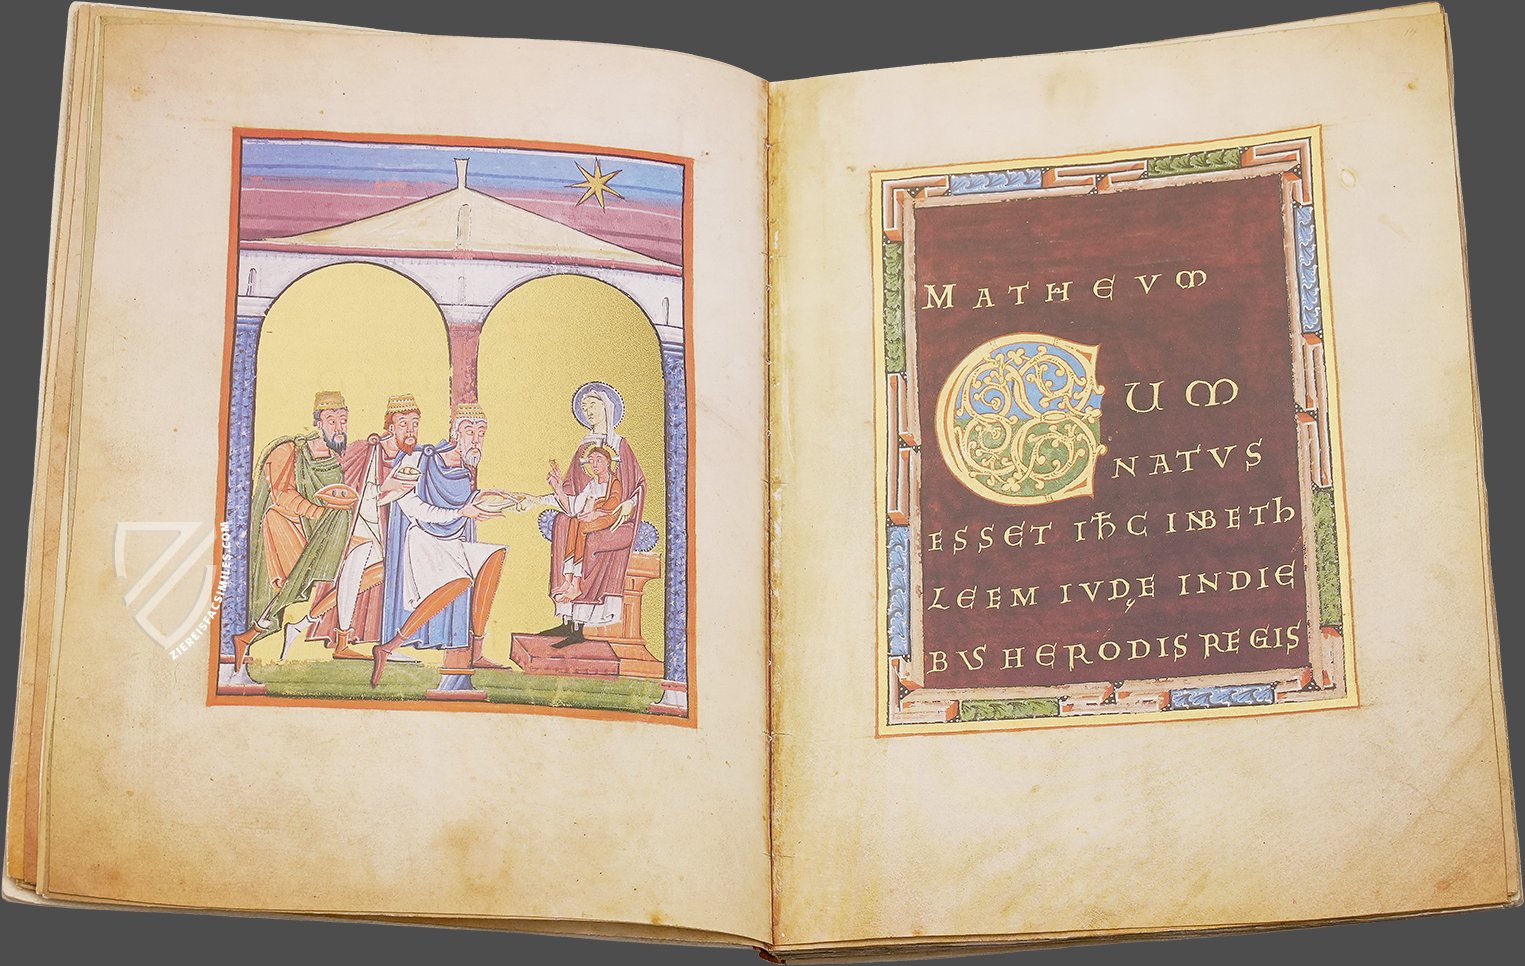 ZIEREISFACSIMILES.COM
MATHEVM
CUM
NATVS
ESSET IħC INBETh
LEEM IVDĘ INDIE
BVS HERODIS REGIS